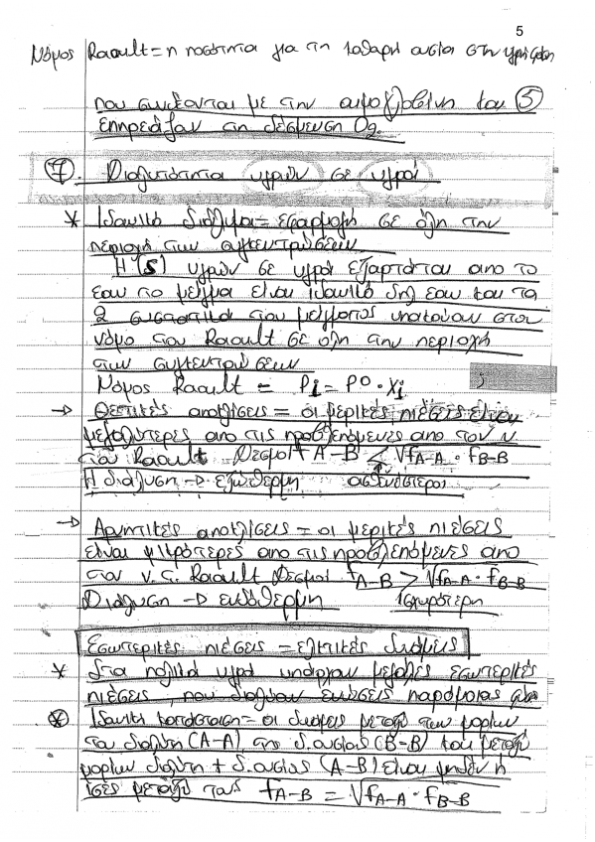 5
Νόμος Raoult = η ποσότητα για τη καθαρή ουσία στην υγρή φάση
που συνδέονται με την αιμοσφαιρίνη και ⑤
επηρεάζουν τη δέσμευση O2.
⑦. Διαλυτότητα υγρών σε υγρά
* Ιδανικό διάλυμα = εφαρμογή σε όλη την
περιοχή των συγκεντρώσεων
Η (S) υγρών σε υγρά εξαρτάται απο το
εαν το μείγμα είναι ιδανικό δηλ εαν και τα
2 συστατικά του μείγματος υπακούουν στον
νόμο του Raoult σε όλη την περιοχή
των συγκεντρώσεων
Νόμος Raoult = Pi = P° · Xi
→ Θετικές αποκλίσεις = οι μερικές πιέσεις είναι
μεγαλύτερες απο τις προβλεπόμενες απο τον ν
του Raoult Δεσμοί f A-B < √fA-A · fB-B
Η διάλυση → εξώθερμη ασθενέστεροι
→ Αρνητικές αποκλίσεις = οι μερικές πιέσεις
είναι μικρότερες απο τις προβλεπόμενες απο
τον ν. τ. Raoult Δεσμοί fA-B > √fA-A · fB-B
Διάλυση → ενδόθερμη Ισχυρότερη
Εσωτερικές πιέσεις = ελκτικές δυνάμεις
* Στα πολικά υγρά υπάρχουν μεγάλες εσωτερικές
πιέσεις, που διαλύουν ενώσεις παρόμοιας
⊛ Ιδανική κατάσταση = οι δυνάμεις μεταξύ των μορίων
του διαλύτη (A-A), της δ.ουσίας (B-B) και μεταξύ
μορίων διαλύτη + δ.ουσίας (A-B) είναι μηδέν ή
ίσες μεταξύ τους fA-B = √fA-A · fB-B